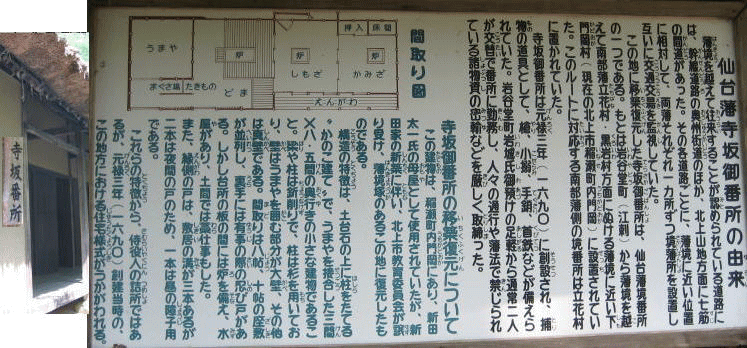 仙台藩寺坂御番所の由来
藩境を越えて往来することが認められている道路に
は、幹線道路の奥州街道のほか、北上山地方面に七筋
の間道があった。その各道路ごとに、藩境に近い位置
に相対して、両藩それぞれ一カ所ずつ境番所を設置し
互いに交通交易を監視していた。
この地に移築復元した寺坂御番所は、仙台藩境番所
の一つである。もとは岩谷堂町（江刺）から藩境を越
えて南部藩立花村、黒岩村方面にぬける藩境に近い下
門岡村（現在の北上市稲瀬町内門岡）に設置されてい
た。このルートに対応する南部藩側の境番所は立花村
に置かれていた。
寺坂御番所は元禄三年（一六九〇）に創設され、捕
物の道具として、槍、小鎖、手鎖、首鉄などが備えら
れていた。岩谷堂町岩城氏御預けの足軽から通常二人
が交替で番所に勤務し、人々の通行や藩法で禁じられ
ている諸物資の密輸などを厳しく取締った。
間取り図
うまや
まぐさ場
たきもの
どま
炉
炉
しもざ
炉
かみざ
押入
床間
えんがわ
寺坂御番所の移築復元について
この建物は、稲瀬町内門岡にあり、新田
太一氏の母屋として使用されていたが、新
田家の新築に伴い、北上市教育委員会が譲
り受け、藩境塚のあるこの地に復元したも
のである。
構造の特徴は、土台石の上に柱をたてる
かのこ建てで、うまやを接合した三間
×八・五間の萱葺きの小さな建物であるこ
と。梁や柱は釿削りで、柱は杉を用いてお
り、壁はうまやを囲む部分が大壁、その他
は真壁である。間取りは八帖、十帖の座敷
が並列し、裏手には有事の際の忍び戸があ
る。しかし台所の板の間には炉を備え、水
屋があり、土間では藁仕事もした。
また、縁側の戸は、敷居の溝が三本あるが
二本は夜間の雨戸のため、一本は昼の障子用
である。
これらの特徴から、侍役人の詰所ではあ
るが、元禄三年（一六九〇）創建当時の、
この地方における住宅様式がうかがわれる。
寺坂番所